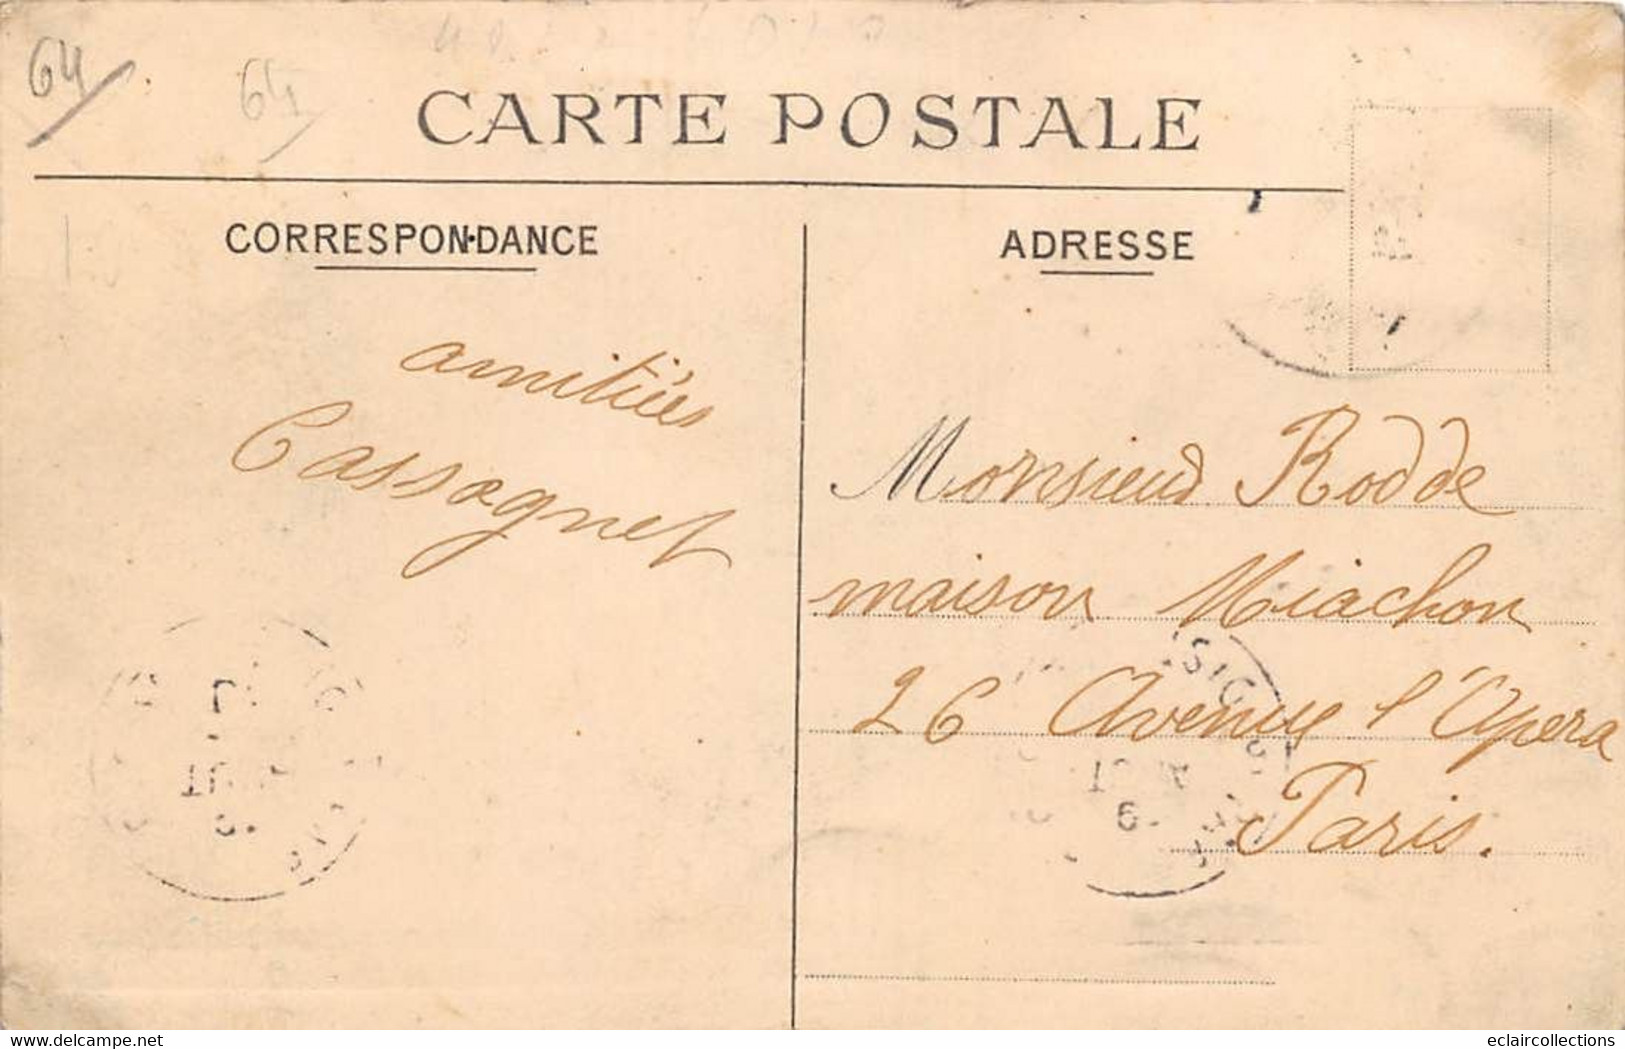 64
64
CARTE POSTALE
CORRESPONDANCE
ADRESSE
amitiés
Cassagnet
Monsieur Rodde
maison Miachon
26 Avenue l'Opera
Paris.
delcampe.net
eclaircollections